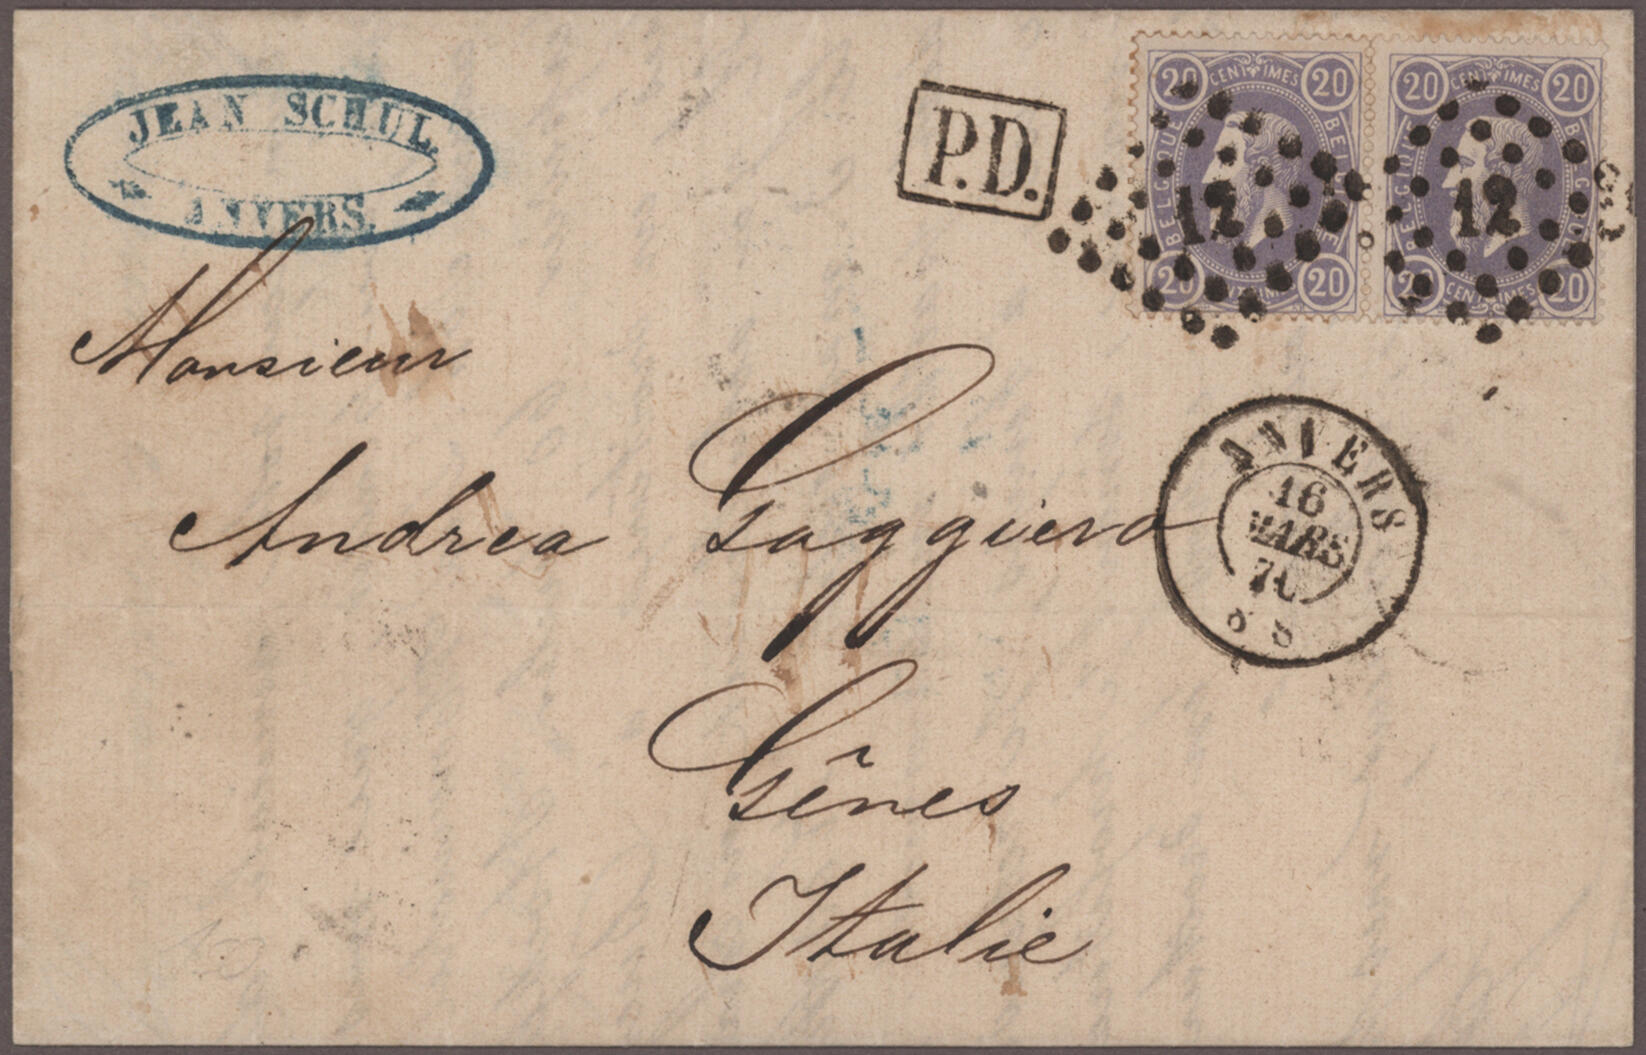 JEAN SCHUL.
ANVERS.
P.D.
20 CENTIMES 20
BELGIQUE BELGIE
20 CENTIMES 20
20 CENTIMES 20
BELGIQUE BELGIE
20 CENTIMES 20
12
12
Monsieur
Andrea Gaggiero
Gênes
Italie
ANVERS
16
MARS
70
8 S